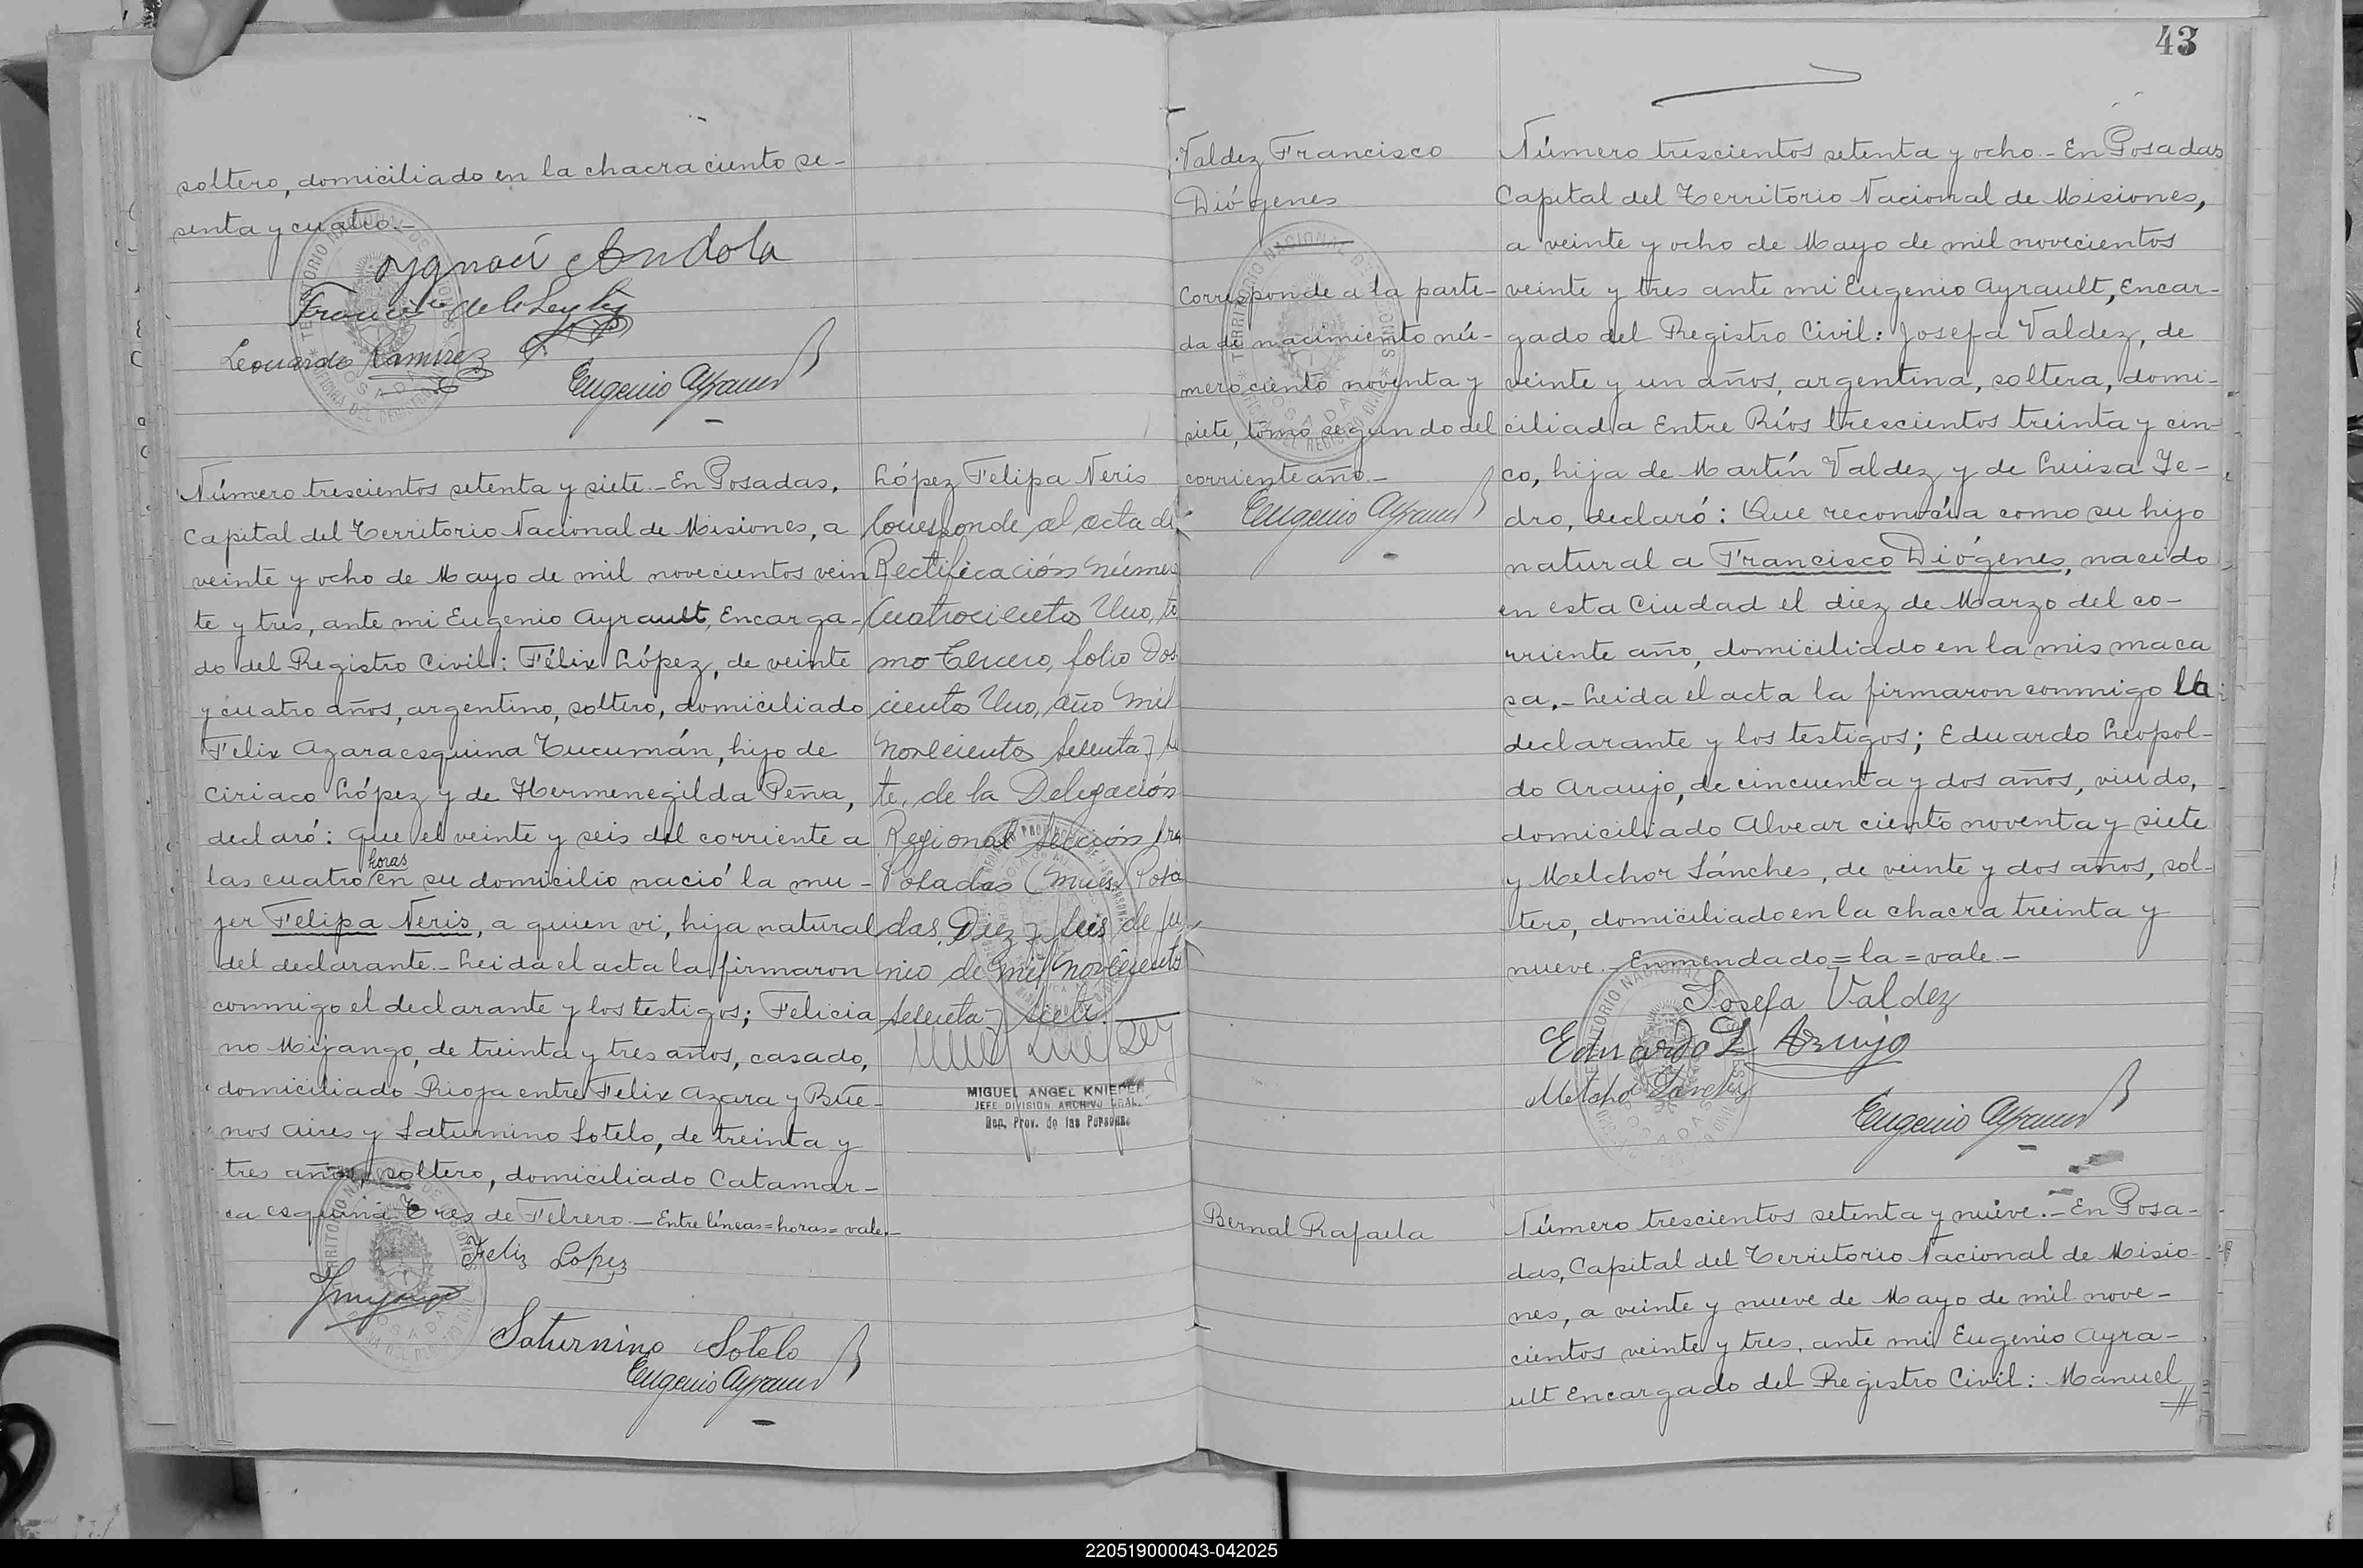 soltero, domiciliado en la chacra ciento se-
senta y cuatro.-
Ygnaci Andola
Leonardo Ramirez
Eugenio Ayrault
Número trescientos setenta y siete.- En Posadas,
Capital del Territorio Nacional de Misiones, a
veinte y ocho de Mayo de mil novecientos vein
te y tres, ante mi Eugenio Ayrault, Encarga-
do del Registro Civil: Félix López, de veinte
y cuatro años, argentino, soltero, domiciliado
Felix Azara esquina Tucumán, hijo de
Ciriaco López y de Hermenegilda Peña,
declaró: que el veinte y seis del corriente a
las cuatro horas en su domicilio nació la mu-
jer Felipa Neris, a quien vi, hija natural
del declarante.- Leida el acta la firmaron
conmigo el declarante y los testigos; Felicia
no Mijango, de treinta y tres años, casado,
domiciliado Rioja entre Felix Azara y Bue-
nos Aires y Saturnino Sotelo, de treinta y
tres años, soltero, domiciliado Catamar-
ca esquina Tres de Febrero.- Entre líneas=horas=vale.-
Felix Lopez
Saturnino Sotelo
Eugenio Ayrault
López Felipa Neris
Corresponde al acta de
Rectificación número
Cuatrocientos Uno, to
mo Tercero, folio Dos
cientos Uno, año mil
novecientos setenta y sie
te, de la Delegación
Regional Sección 1ra
Posadas (Mnes) Posa
das, Diez y seis de ju
nio de mil novecientos
setenta y siete.
MIGUEL ANGEL KNIEPER
JEFE DIVISION ARCHIVO GRAL.
Rep. Prov. de las Personas
43
Valdez Francisco
Diógenes
Corresponde a la parti-
da de nacimiento nú-
mero ciento noventa y
siete, tomo segundo del
corriente año.-
Eugenio Ayrault
Número trescientos setenta y ocho.- En Posadas
Capital del Territorio Nacional de Misiones,
a veinte y ocho de Mayo de mil novecientos
veinte y tres ante mi Eugenio Ayrault, Encar-
gado del Registro Civil: Josefa Valdez, de
veinte y un años, argentina, soltera, domi-
ciliada Entre Ríos trescientos treinta y cin-
co, hija de Martín Valdez y de Luisa Ye-
dro, declaró: Que reconocía como su hijo
natural a Francisco Diógenes, nacido
en esta Ciudad el diez de Marzo del co-
rriente año, domiciliado en la misma ca
sa.- Leida el acta la firmaron conmigo la
declarante y los testigos; Eduardo Leopol-
do Araujo, de cincuenta y dos años, viudo,
domiciliado Alvear ciento noventa y siete
y Melchor Sánches, de veinte y dos años, sol-
tero, domiciliado en la chacra treinta y
nueve.- Enmendado=la=vale.-
Josefa Valdez
Eduardo L Araujo
Melcho Sanchez
Eugenio Ayrault
Bernal Rafaela
Número trescientos setenta y nueve.- En Posa-
das, Capital del Territorio Nacional de Misio-
nes, a veinte y nueve de Mayo de mil nove-
cientos veinte y tres, ante mi Eugenio Ayra-
ult Encargado del Registro Civil: Manuel
220519000043-042025